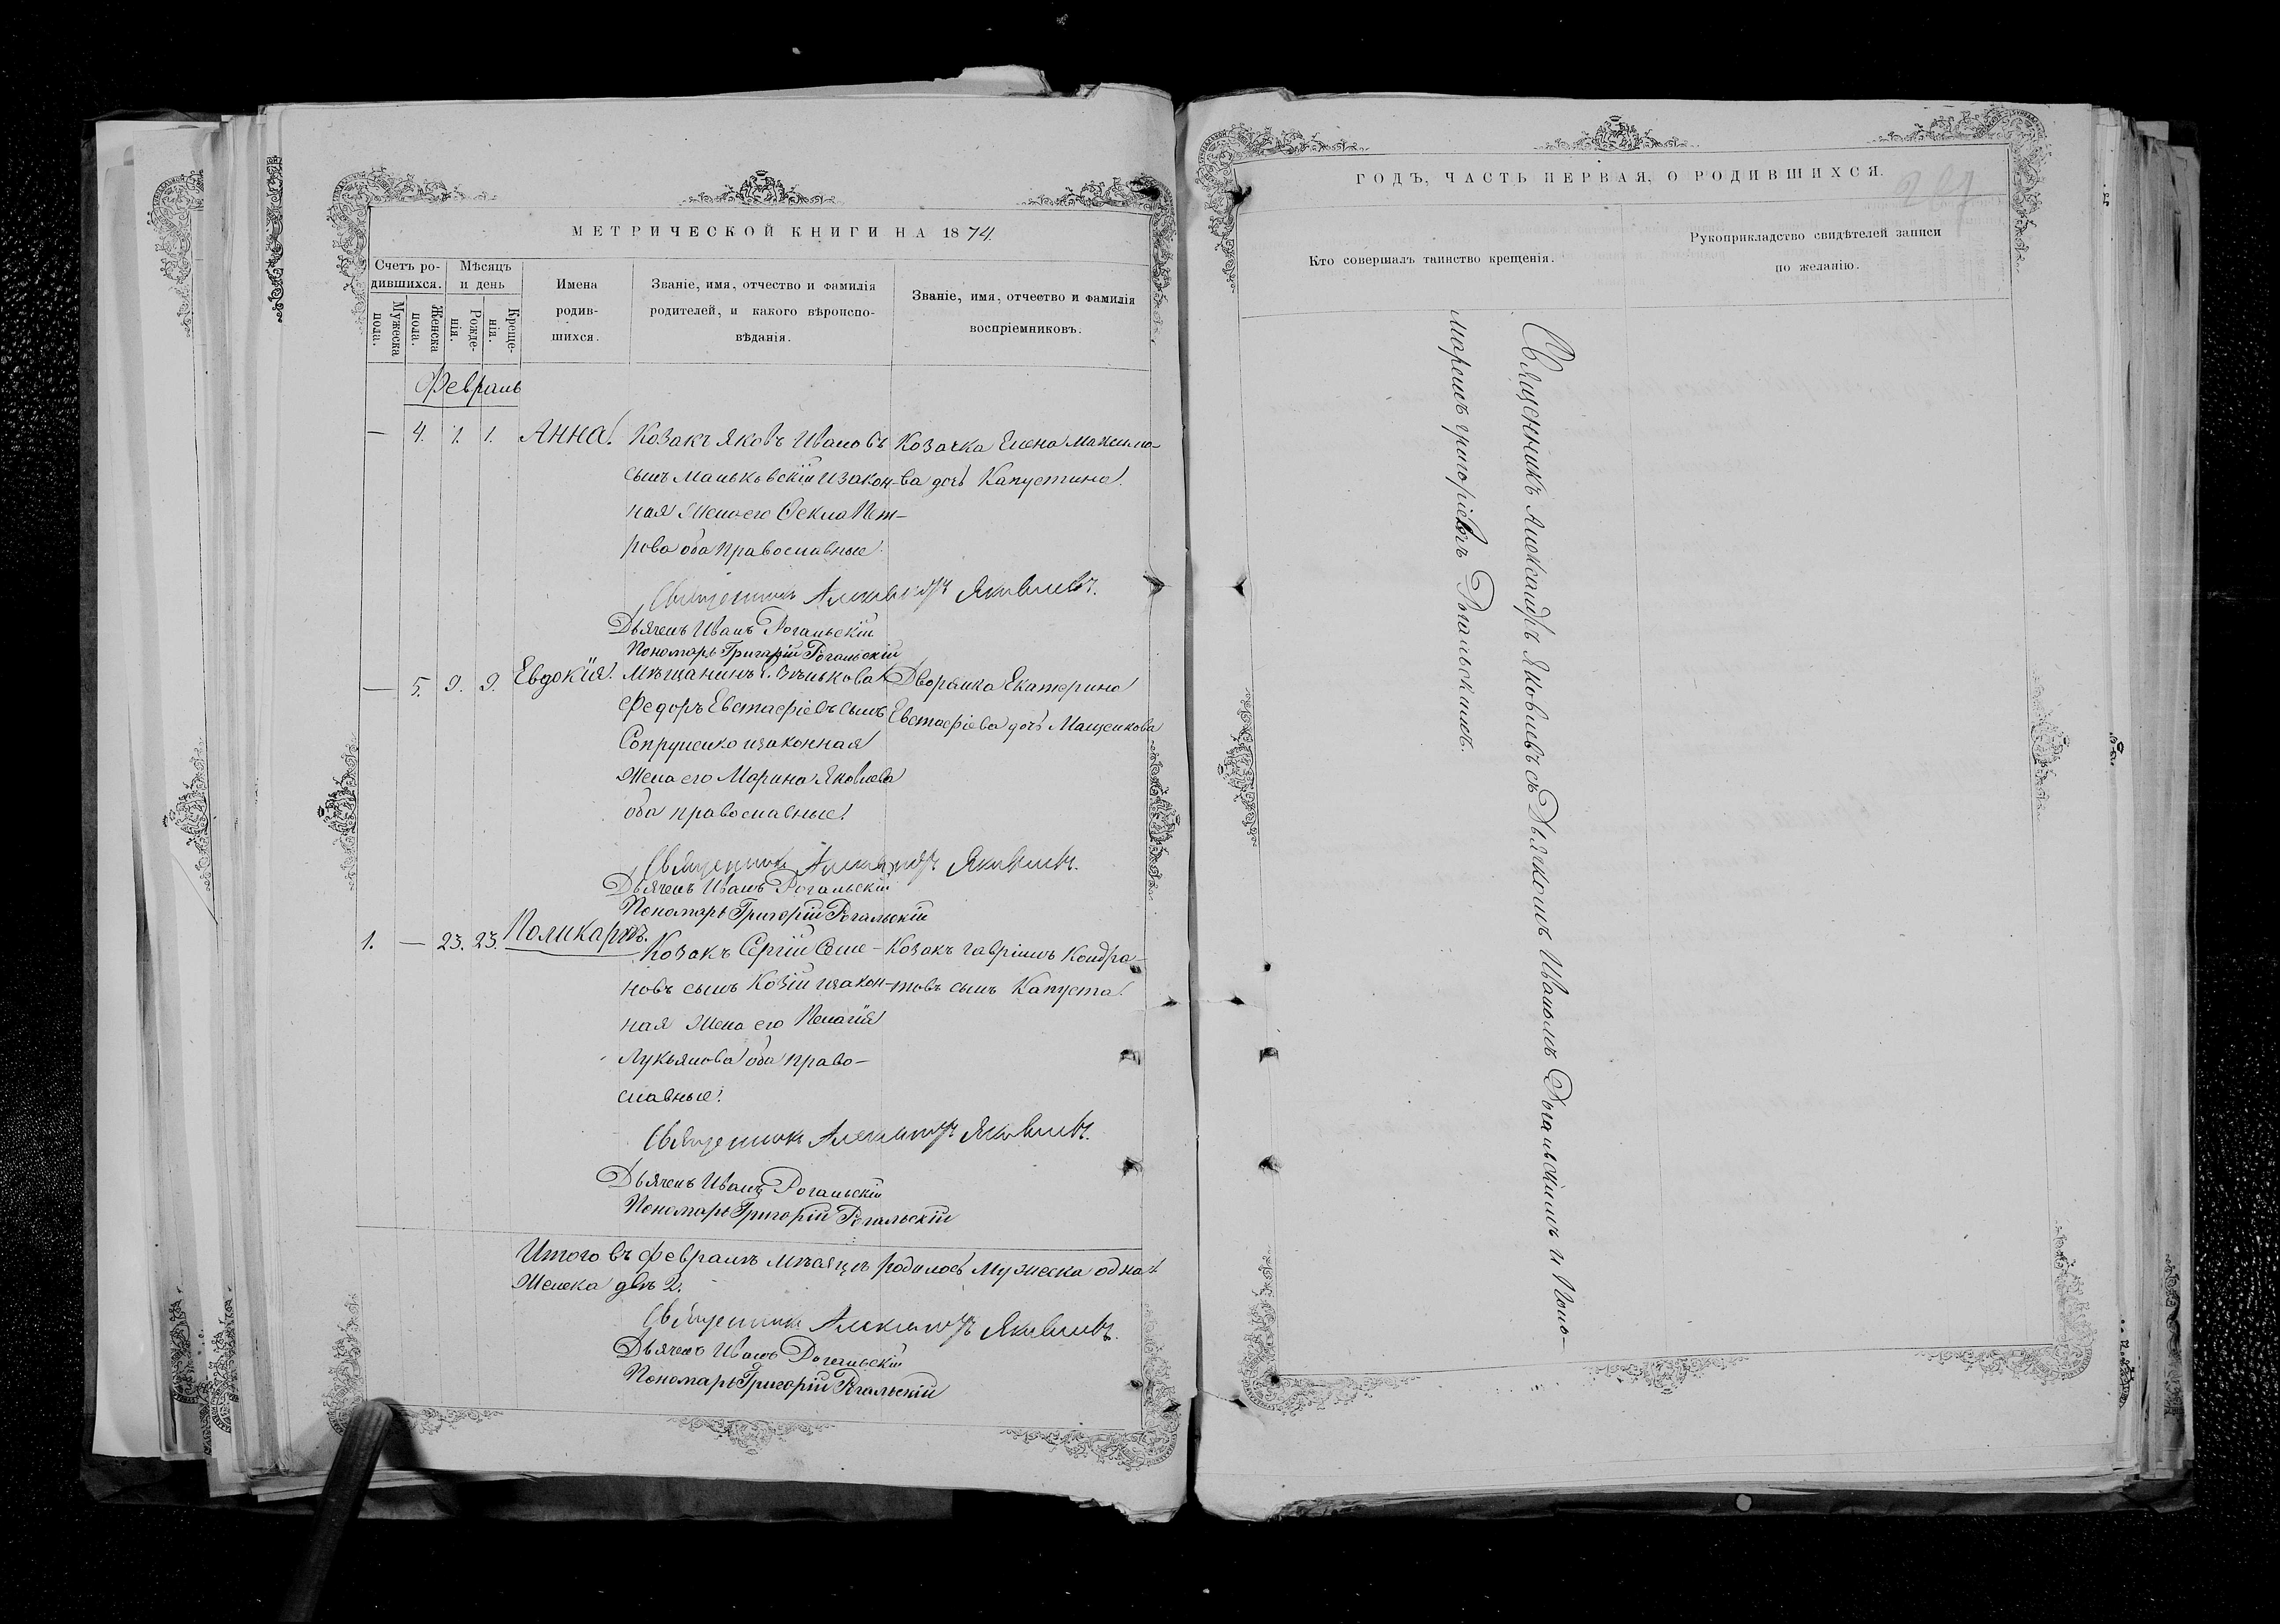 МЕТРИЧЕСКОЙ КНИГИ НА 1874.
Счетъ ро-
дившихся.
Мужеска
пола.
Женска
пола.
Мѣсяцъ
и день
Рожде-
нія.
Креще-
нія.
Имена
родив-
шихся.
Званіе, имя, отчество и фамилія
родителей, и какого вѣроиспо-
вѣданія.
Званіе, имя, отчество и фамилія
воспріемниковъ.
Февраль
— 4. 1. 1. Анна. Козакъ Яковъ Ивановъ Козачка Елена Максимо-
сынъ Маньковскій изакон- ва дочь Капустина.
ная жена его Фекла Пет-
рова оба православные.
Священникъ Александръ Яковлевъ.
Дьячекъ Иванъ Рогальскій
Пономарь Григорій Рогальскій
— 5. 9. 9. Евдокія. Мѣщанинъ г. Зѣнькова Дворянка Екатерина
Федоръ Евстафіевъ сынъ Евстафіева дочь Мащенкова
Сопруненко изаконная
жена его Марина Яковлева
оба православные.
Священникъ Александръ Яковлевъ.
Дьячекъ Иванъ Рогальскій
Пономарь Григорій Рогальскій
1. — 23. 23. Поликарпъ.
Козакъ Сергій Симе- Козакъ Гавріилъ Кондра-
новъ сынъ Козій изакон- товъ сынъ Капуста.
ная жена его Пелагія
Лукьянова оба право-
славные.
Священникъ Александръ Яковлевъ.
Дьячекъ Иванъ Рогальскій
Пономарь Григорій Рогальскій
Итого въ февралѣ мѣсяцѣ родилось мужеска одна 1.
Женска двѣ 2.
Священникъ Александръ Яковлевъ.
Дьячекъ Иванъ Рогальскій
Пономарь Григорій Рогальскій
ГОДЪ, ЧАСТЬ ПЕРВАЯ, О РОДИВШИХСЯ.
Кто совершалъ таинство крещенія.
Рукоприкладство свидѣтелей записи
по желанію.
Священникъ Александръ Яковлевъ съ Дьячкомъ Иваномъ Рогальскимъ и Поно-
маремъ Григоріемъ Рогальскимъ.